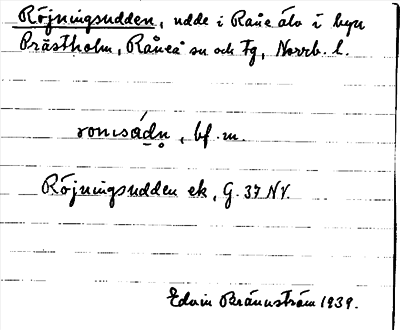 Röjningsudden, udde i Råne älv i byn
Prästholm, Råneå sn och tg, Norrb. l.
bf. m.
Röjningsudden ek, G. 37 NV.
Edvin Brännström 1939.